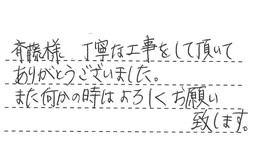 斉藤様 丁寧な工事をして頂いて
ありがとうございました。
また何かの時はよろしくお願い
致します。